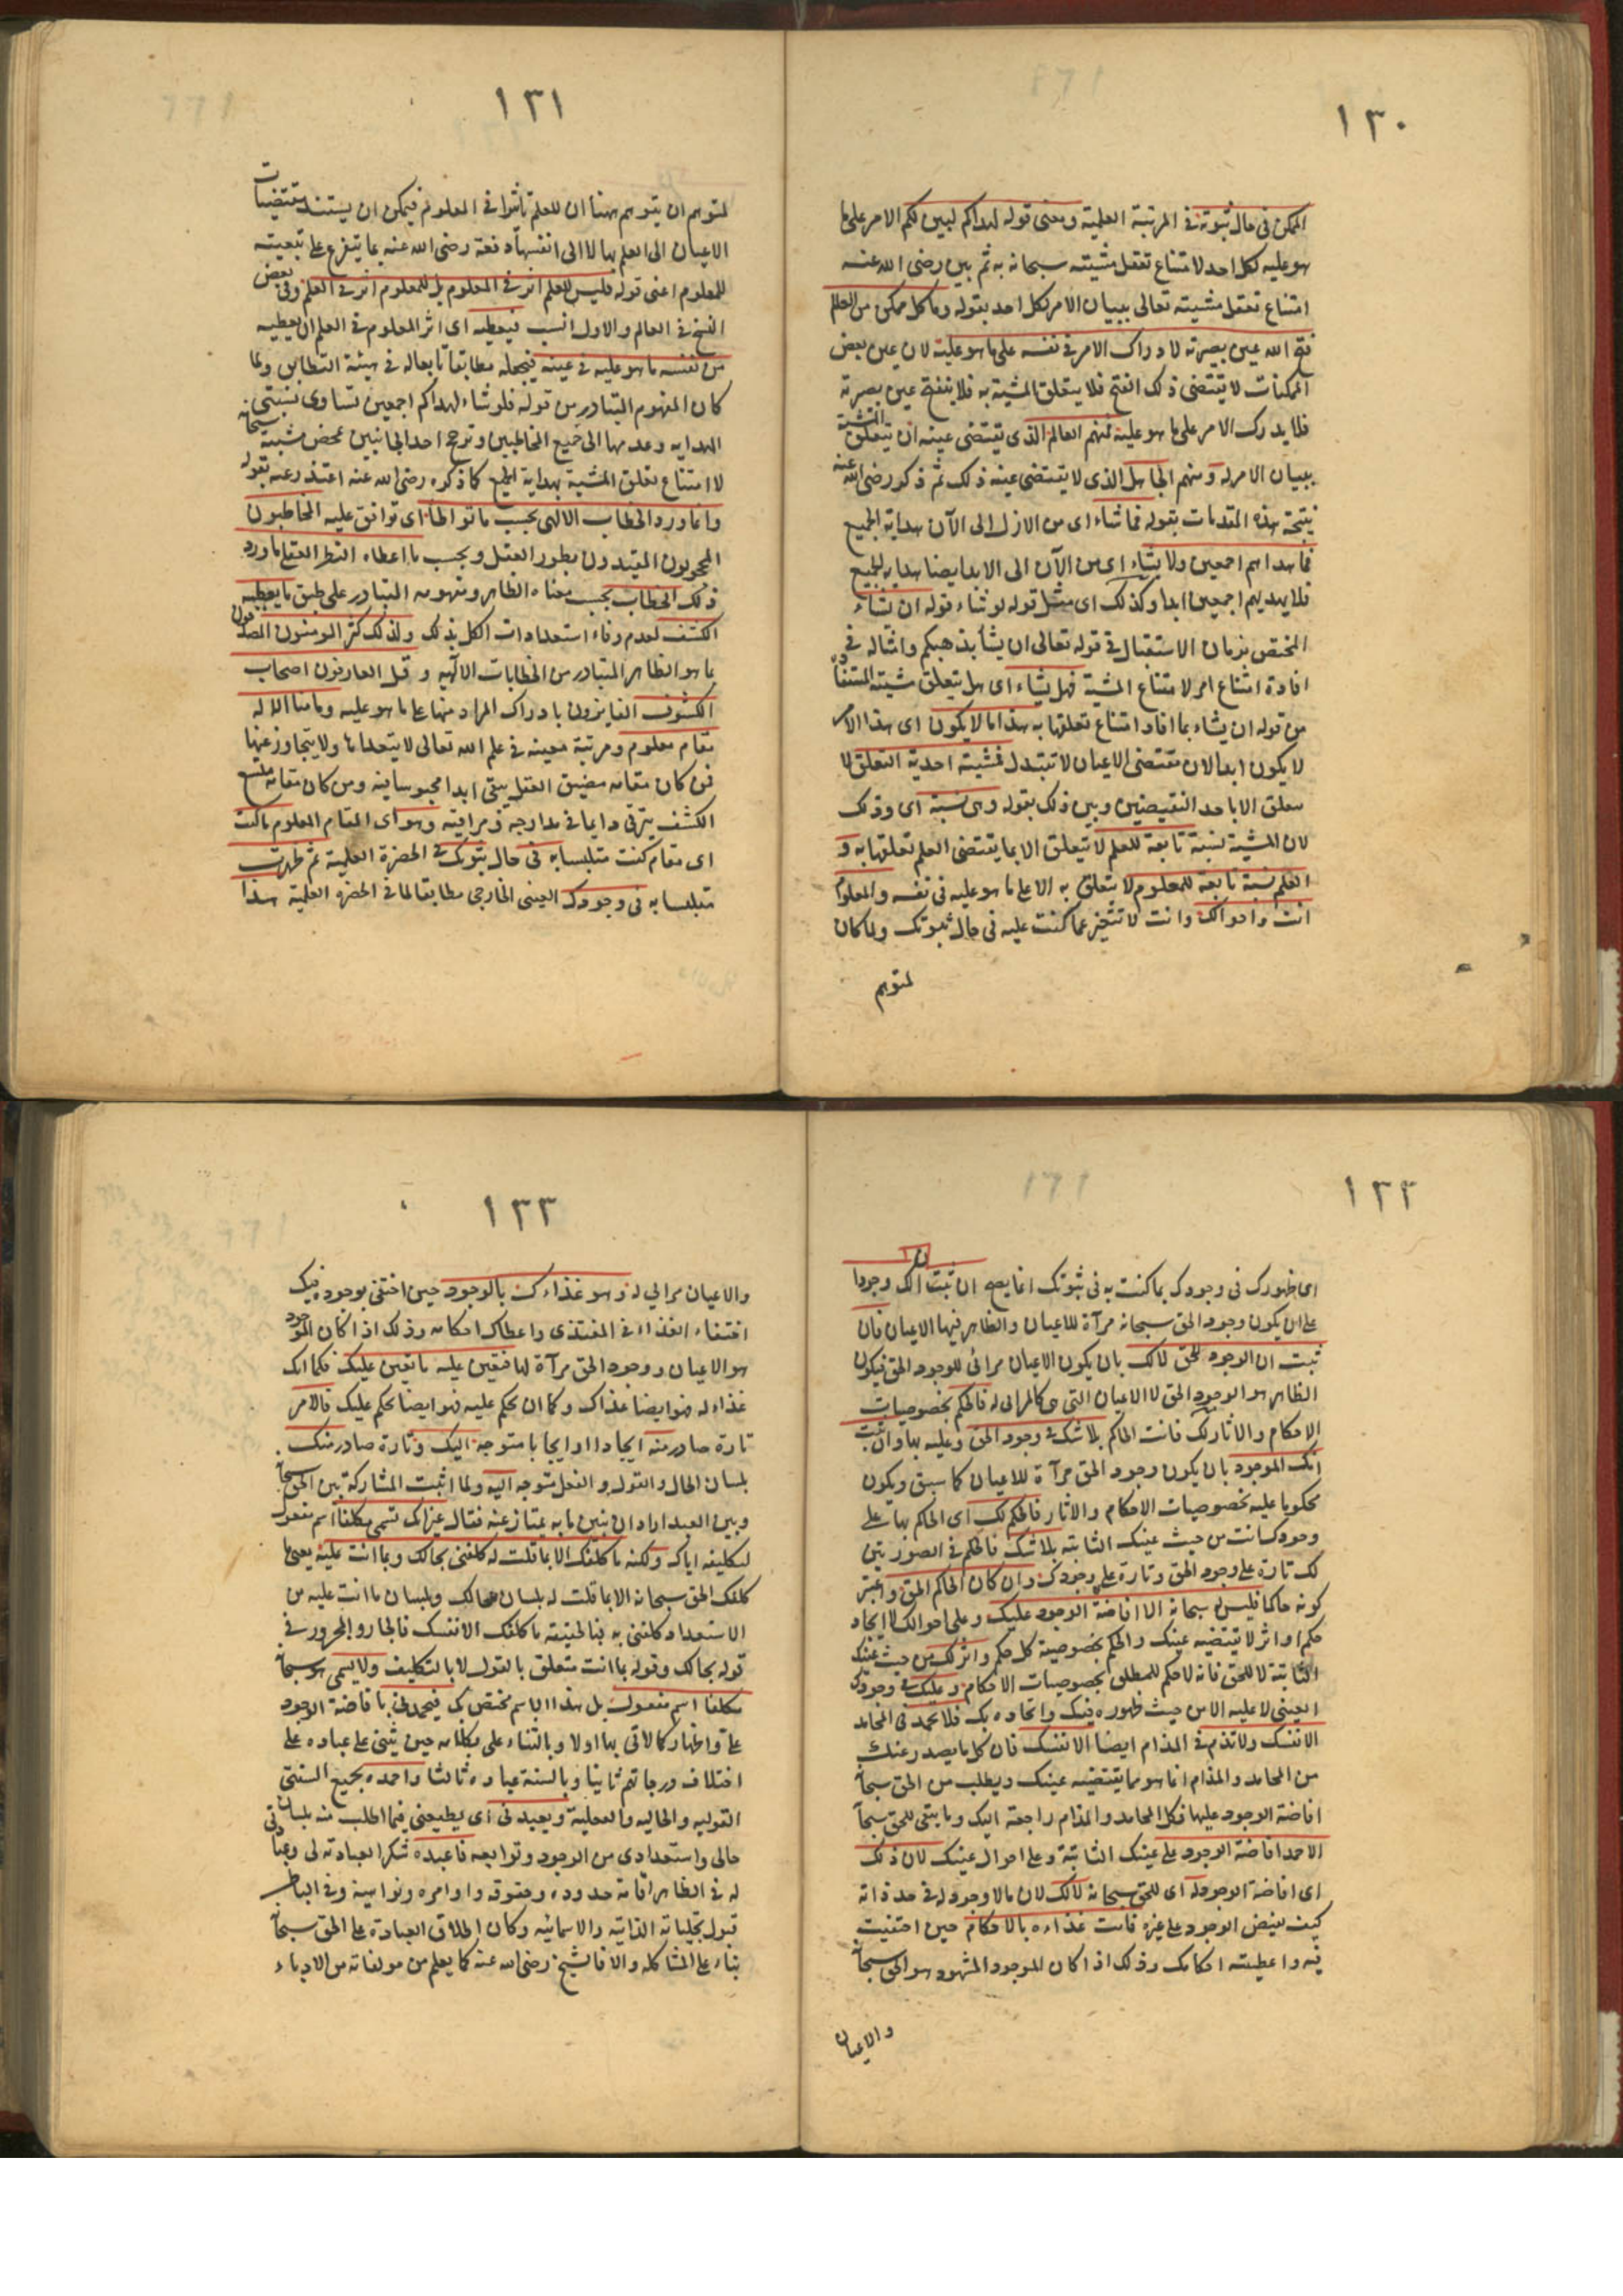 ١٣٠
الممكن فى حال ثبوته فى المرتبة العلمية ومعنى قوله لهداكم لبين لكم الامر على ما
هو عليه لكل احد لامتناع تعقل مشيته سبحانه به ثم بين رضى الله عنه
امتناع تعقل مشيته تعالى ببيان الامر لكل احد بقوله وما كل ممكن من العلم
فتح الله عين بصيرته لادراك الامر فى نفسه على ما هو عليه لان عين بعض
الممكنات لا تقتضى ذلك الفتح فلا يتعلق المشية به فلا ينفتح عين بصيرته
فلا يدرك الامر على ما هو عليه فمنهم العالم الذى يقتضى عينه ان يتعلق المشية
ببيان الامر له ومنهم الجاهل الذى لا يقتضى عينه ذلك ثم ذكر رضى الله عنه
نتيجة هذه المقدمات بقوله فما شاء اى من الازل الى الآن هداية الجميع
فما هداهم اجمعين ولا يشاء اى من الآن الى الابد ايضا هداية الجميع
فلا يهديهم اجمعين ابدا وكذلك اى مثل قوله لو شاء قوله ان يشاء
المختص بزمان الاستقبال فى قوله تعالى ان يشأ يذهبكم وامثاله فى
افادة امتناع امر لامتناع المشية فهل يشاء اى هل يتعلق مشيته المستفادة
من قوله ان يشاء بما افاد امتناع تعلقها به هذا ما لا يكون اى هذا الامر
لا يكون ابدا لان مقتضى الاعيان لا تتبدل فمشيته احدية التعلق لا
يتعلق الا باحد النقيضين وبين ذلك بقوله وهى نسبة اى وذلك
لان المشية نسبة تابعة للعلم لا تتعلق الا بما يقتضى العلم تعلقها به و
العلم نسبة تابعة للمعلوم لا يتعلق به الا على ما هو عليه فى نفسه والمعلوم
انت واحوالك وانت لا تتغير عما كنت عليه فى حال ثبوتك ولما كان
لمتوهم
١٣١
لمتوهم ان يتوهم ههنا ان للعلم تأثيرا فى المعلوم فيمكن ان يستند مقتضيات
الاعيان الى العلم بها لا الى انفسها دفعه رضى الله عنه بما يتفرع على تبعيته
للمعلوم اعنى قوله فليس للعلم اثر فى المعلوم بل للمعلوم اثر فى العلم وفى بعض
النسخ فى العالم والاول انسب فيعطيه اى اثر المعلوم فى العلم ان يعطيه
من نفسه ما هو عليه فى عينه فيجعله مطابقا تابعا له فى هيئة التطابق ولما
كان المفهوم المتبادر من قوله فلو شاء لهداكم اجمعين تساوى نسبتى
الهداية وعدمها الى جميع المخاطبين وترجح احد الجانبين بمحض مشيته سبحانه
لا امتناع تعلق المشية بهداية الجميع كما ذكره رضى الله عنه اعتذر عنه بقوله
وانما ورد الخطاب الالهى بحسب ما تواطأ اى توافق عليه المخاطبون
المحجوبون المقيدون بطور العقل وبحسب ما اعطاه النظر العقلى ما ورد
ذلك الخطاب بحسب معناه الظاهر ومفهومه المتبادر على طبق ما يعطيه
الكشف لعدم وفاء استعدادات الكل بذلك ولذلك كثر المومنون المصدقون
بما هو الظاهر المتبادر من الخطابات الالهيه وقل العارفون اصحاب
الكشوف الفايزون بادراك المراد منها على ما هو عليه وما منا الا له
مقام معلوم ومرتبة معينه فى علم الله تعالى لا يتعداها ولا يتجاوز عنها
فمن كان مقامه مضيق العقل يبقى ابدا محبوسا فيه ومن كان مقامه متسع
الكشف يترقى دايما فى مدارجه ومراقيه وهو اى المقام المعلوم ما كنت
اى مقام كنت متلبسا به فى حال ثبوتك فى الحضرة العلمية ثم ظهرت
متلبسا به فى وجودك العينى الخارجى مطابقا لما فى الحضرة العلمية هذا
١٣٢
اى ظهورك فى وجودك بما كنت به فى ثبوتك انما يصح ان ثبت ان لك وجودا
على ان يكون وجود الحق سبحانه مرآة للاعيان والظاهر فيها الاعيان فان
ثبت ان الوجود للحق لا لك بان يكون الاعيان مرائى للوجود الحق فيكون
الظاهر هو الوجود الحق لا الاعيان التى هى كالمرائى له فالحكم بخصوصيات
الاحكام والاثار لك فانت الحاكم بلا شك فى وجود الحق وعليه بها وان ثبت
انك الموجود بان يكون وجود الحق مرآة للاعيان كما سبق ويكون
محكوما عليه بخصوصيات الاحكام والاثار فالحكم لك اى الحاكم بها على
وجودك انت من حيث عينك الثابته بلا شك فالحكم فى الصورتين
لك تارة على وجود الحق وتارة على وجودك وان كان الحاكم الحق واعتبر
كونه حاكما فليس له سبحانه الا افاضة الوجود عليك وعلى احوالك لا ايجاد
حكم او اثر لا يقتضيه عينك والحكم بخصوصية كل حكم واثر لك من حيث عينك
الثابتة لا للحق فانه لا حكم للمطلق بخصوصيات الاحكام وعليك فى وجودك
العينى لا عليه الا من حيث ظهوره فيك واتحاده بك فلا تحمد فى المحامد
الا نفسك ولا تذم فى المذام ايضا الا نفسك فان كل ما يصدر عنك
من المحامد والمذام انما هو مما يقتضيه عينك ويطلب من الحق سبحانه
افاضة الوجود عليها فكل المحامد والمذام راجعة اليك وما يبقى للحق سبحانه
الا حمد افاضة الوجود على عينك الثابتة وعلى احوال عينك لان ذلك
اى افاضة الوجود له اى للحق سبحانه لا لك لان ما لا وجود له فى حد ذاته
كيف يفيض الوجود على غيره فانت غذاءه بالاحكام حين اختفيت
فيه واعطيته احكامك وذلك اذا كان الموجود المشهود هو الحق سبحانه
والاعيان
١٣٣
والاعيان مرائى له وهو غذاءك بالوجود حين اختفى بوجوده فيك
اختفاء الغذاء فى المغتذى واعطاك احكامه وذلك اذا كان الموجود
هو الاعيان ووجود الحق مرآة لها فتعين عليه ما تعين عليك فكما انك
غذاء له فهو ايضا غذاك وكما ان تحكم عليه فهو ايضا يحكم عليك فالامر
تارة صادر منه ايجادا او ايجابا متوجه اليك وتارة صادر منك
بلسان الحال والقول والفعل متوجه اليه ولما اثبت المشاركة بين الحق سبحانه
وبين العبد اراد ان يبين ما به يمتاز عنه فقال غير انك تسمى مكلفا اسم مفعول
لتكليفه اياك ولكنه ما كلفك الا بما قلت له كلفنى بحالك وبما انت عليه يعنى ما
كلفك الحق سبحانه الا بما قلت له بلسان حالك وبلسان ما انت عليه من
الاستعداد كلفنى به فبالحقيقة ما كلفك الا نفسك فالجار والمجرور فى
قوله بحالك وقوله بما انت متعلق بالقول لا بالتكليف ولا يسمى هو سبحانه
مكلفا اسم مفعول بل هذا الاسم مختص بك فيحمدنى بافاضة الوجود
على واظهار كمالاتى بها اولا وبالثناء على بكلامه حين يثنى على عباده على
اختلاف درجاتهم ثانيا وبالسنة عباده ثالثا واحمده بجميع السنتى
القولية والحالية والفعلية ويعبدنى اى يطيعنى فيما اطلب منه بلسان
حالى واستعدادى من الوجود وتوابعه فاعبده شكرا لعبادته لى وعبادتى
له فى الظاهر اقامة حدوده وحقوقه واوامره ونواهيه وفى الباطن
قبول تجلياته الذاتيه والاسمائيه وكان اطلاق العبادة على الحق سبحانه
بناء على المشاكله والا فالشيخ رضى الله عنه كما يعلم من مولفاته من الادباء